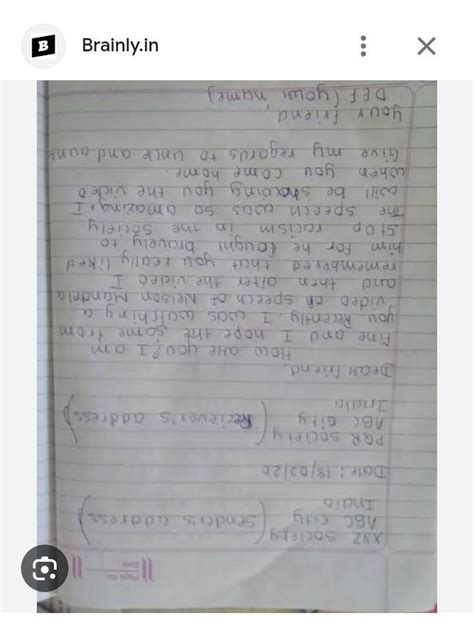 Brainly.in
XSZ society
ABC city (Sender's address)
India
Date: 18/02/20
PQR society
ABC city (Reciever's address)
India
Dear friend,
How are you? I am
fine and I hope the same from
you. Recently, I was watching a
video on speech of Nelson Mandela
and then after the video I
remembered that you really liked
him for he fought bravely to
stop racism in the society.
The speech was so amazing, I
will be showing you the video
when you come home.
Give my regards to uncle and aunt
your friend
DEF (your name)